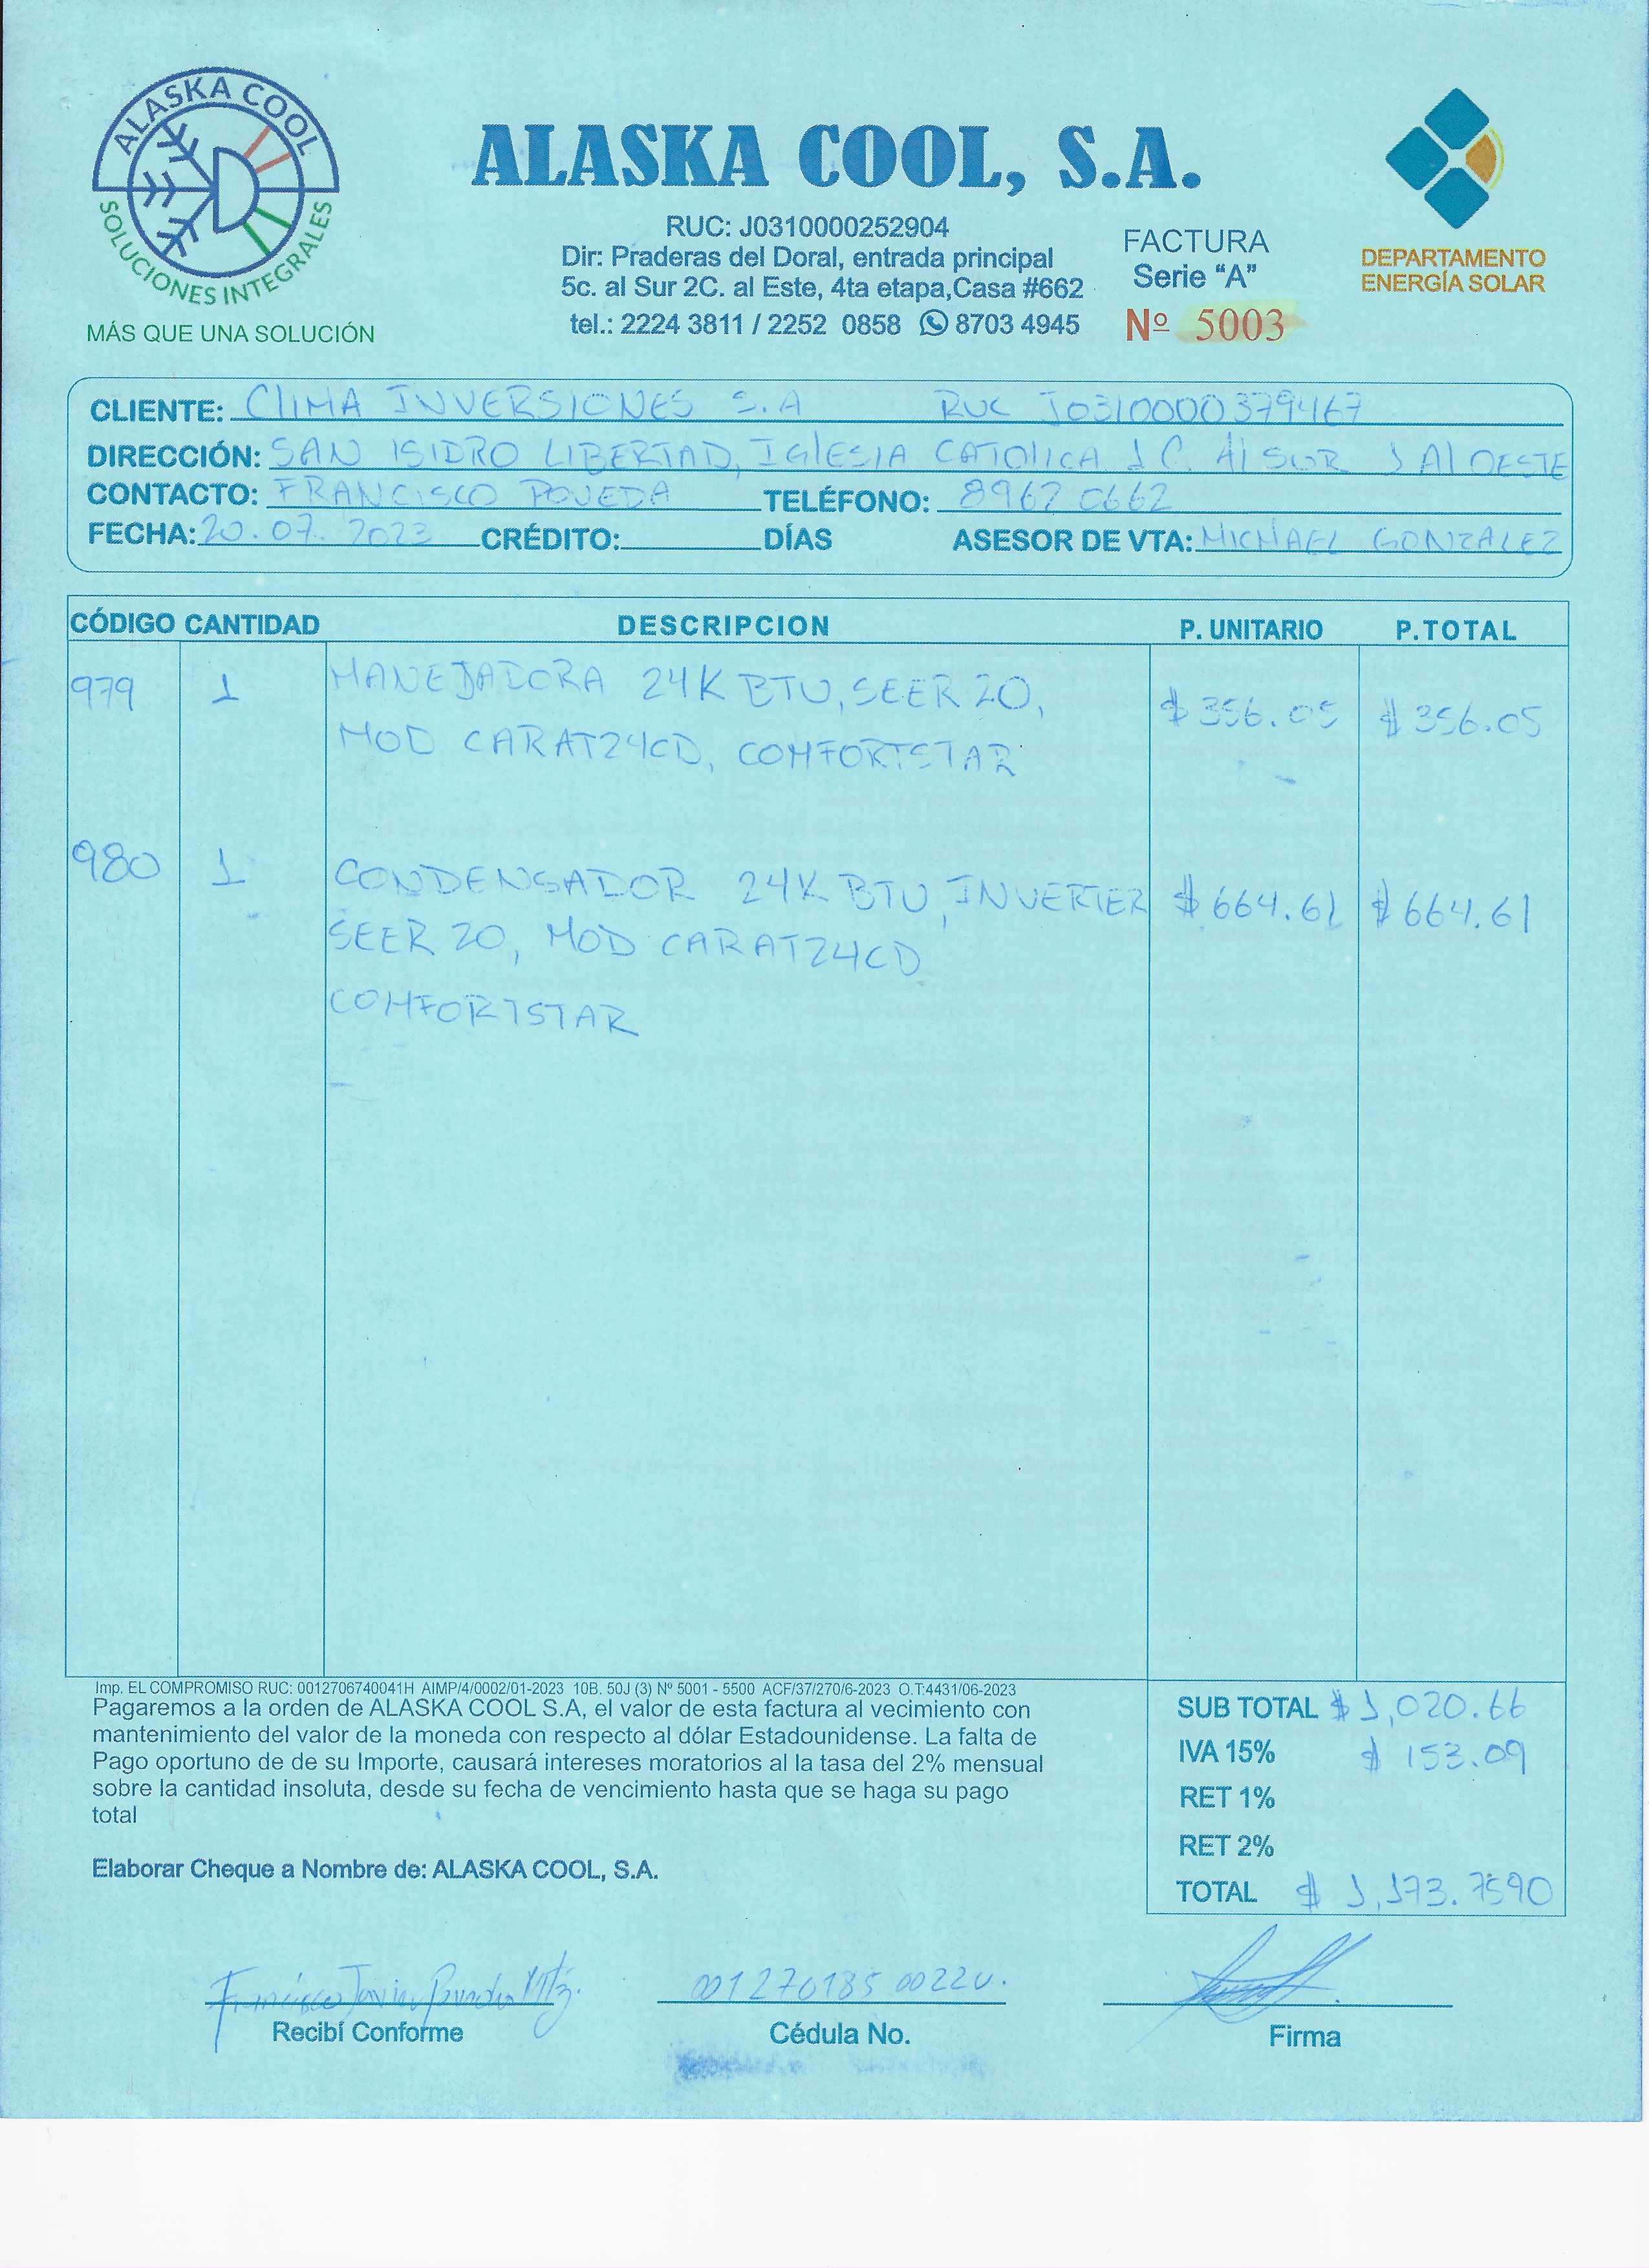 ALASKA COOL
SOLUCIONES INTEGRALES
MÁS QUE UNA SOLUCIÓN
ALASKA COOL, S.A.
RUC: J0310000252904
Dir: Praderas del Doral, entrada principal
5c. al Sur 2C. al Este, 4ta etapa,Casa #662
tel.: 2224 3811 / 2252 0858 8703 4945
FACTURA
Serie "A"
Nº 5003
DEPARTAMENTO
ENERGÍA SOLAR
CLIENTE: CLIMA INVERSIONES S.A RUC J0310000379467
DIRECCIÓN: SAN ISIDRO LIBERTAD, IGLESIA CATOLICA 1 C. Al SUR 1 Al OESTE
CONTACTO: FRANCISCO POVEDA TELÉFONO: 8962 0662
FECHA: 20.07.2023 CRÉDITO: DÍAS ASESOR DE VTA: MICHAEL GONZALEZ
CÓDIGO CANTIDAD DESCRIPCION P. UNITARIO P.TOTAL
979 1 MANEJADORA 24K BTU, SEER 20, $ 356.05 $ 356.05
MOD CARAT24CD, COMFORTSTAR
980 1 CONDENSADOR 24K BTU, INVERTER $ 664.61 $ 664.61
SEER 20, MOD CARAT24CD
COMFORTSTAR
Imp. EL COMPROMISO RUC: 0012706740041H AIMP/4/0002/01-2023 10B. 50J (3) Nº 5001 - 5500 ACF/37/270/6-2023 O.T:4431/06-2023
Pagaremos a la orden de ALASKA COOL S.A, el valor de esta factura al vecimiento con
mantenimiento del valor de la moneda con respecto al dólar Estadounidense. La falta de
Pago oportuno de de su Importe, causará intereses moratorios al la tasa del 2% mensual
sobre la cantidad insoluta, desde su fecha de vencimiento hasta que se haga su pago
total
Elaborar Cheque a Nombre de: ALASKA COOL, S.A.
SUB TOTAL $ 1,020.66
IVA 15% $ 153.09
RET 1%
RET 2%
TOTAL $ 1,173.7590
Francisco Javier Poveda Mtz. 001270185 0022U.
Recibí Conforme Cédula No. Firma